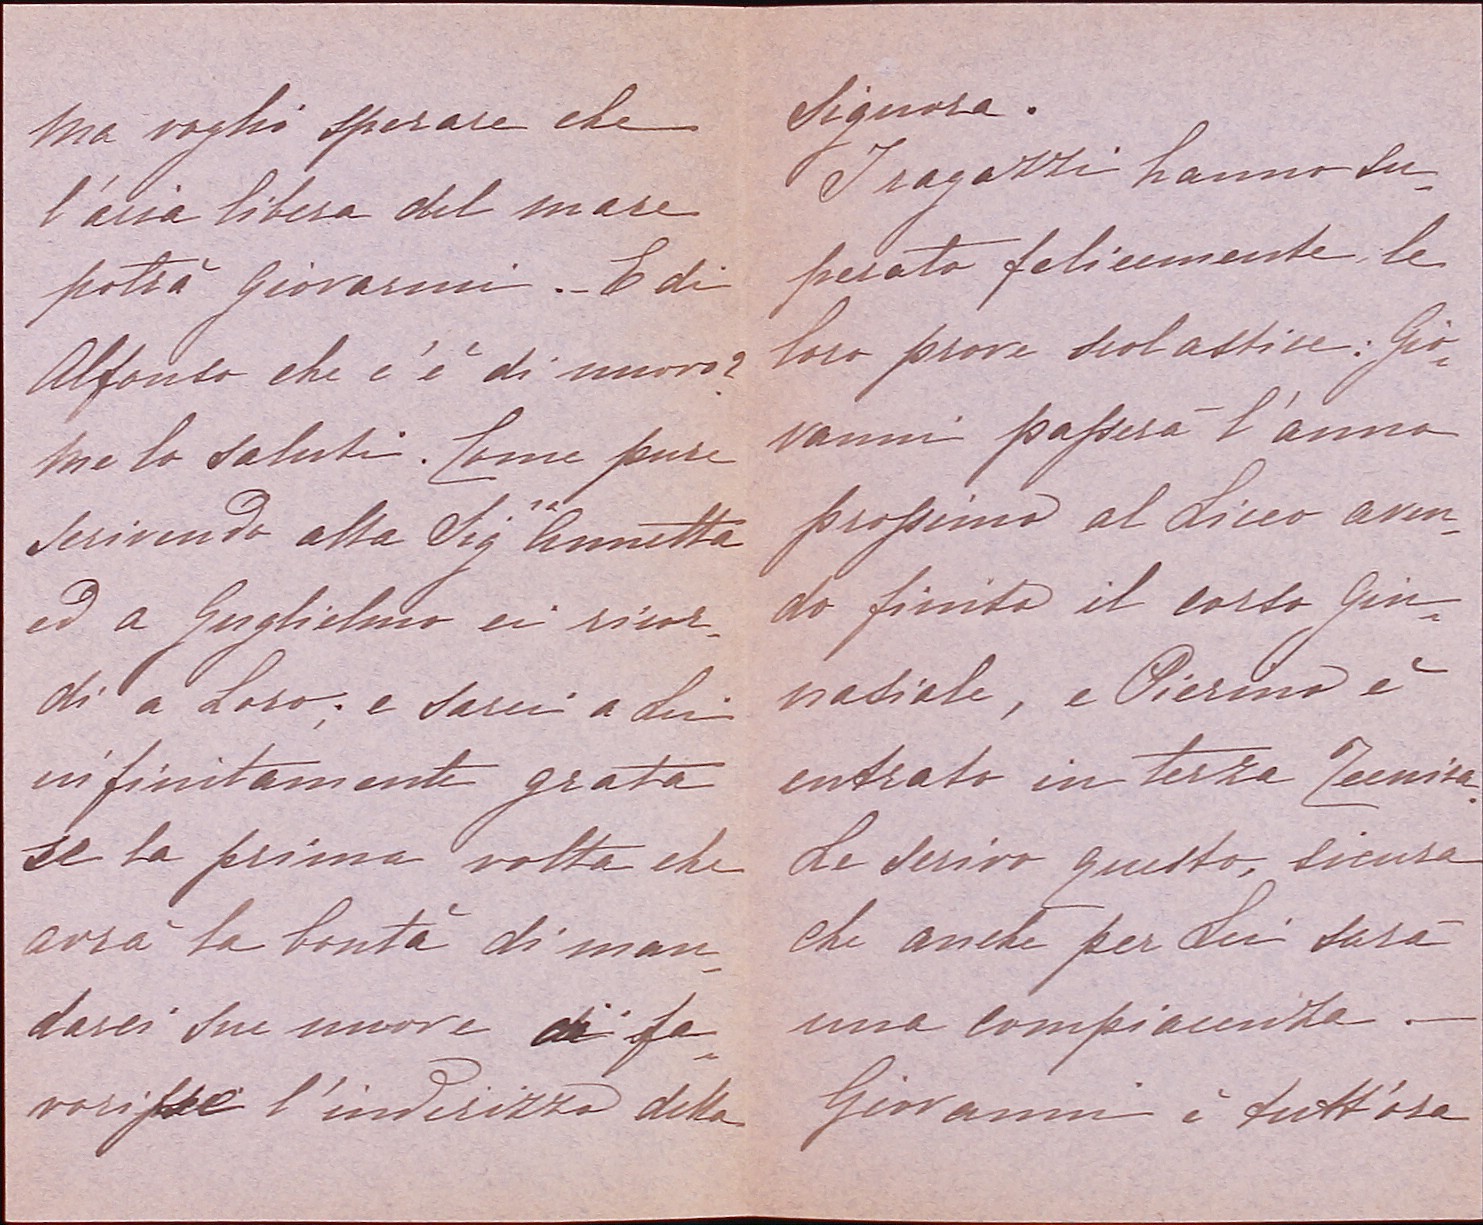 ma voglio sperare che
l'aria libera del mare
potrà Giovarmi. - E di
Alfonso che c'è di nuovo?
me lo saluti. Come pure
scrivendo alla Sig.ra Annetta
ed a Guglielmo ci ricor-
di a Loro; e sarei a Lei
infinitamente grata
se la prima volta che
avrà la bontà di man-
darci sue nuove ci fa-
vorisse l'indirizzo della
Signora.
I ragazzi hanno su-
perato felicemente le
loro prove scolastice: Gio-
vanni passerà l'anno
prossimo al Liceo aven-
do finito il corso Gin-
nasiale, e Pierino è
entrato in terza Tecnica.
Le scrivo questo, sicura
che anche per Lei sarà
una compiacenza. —
Giovanni è tutt'ora